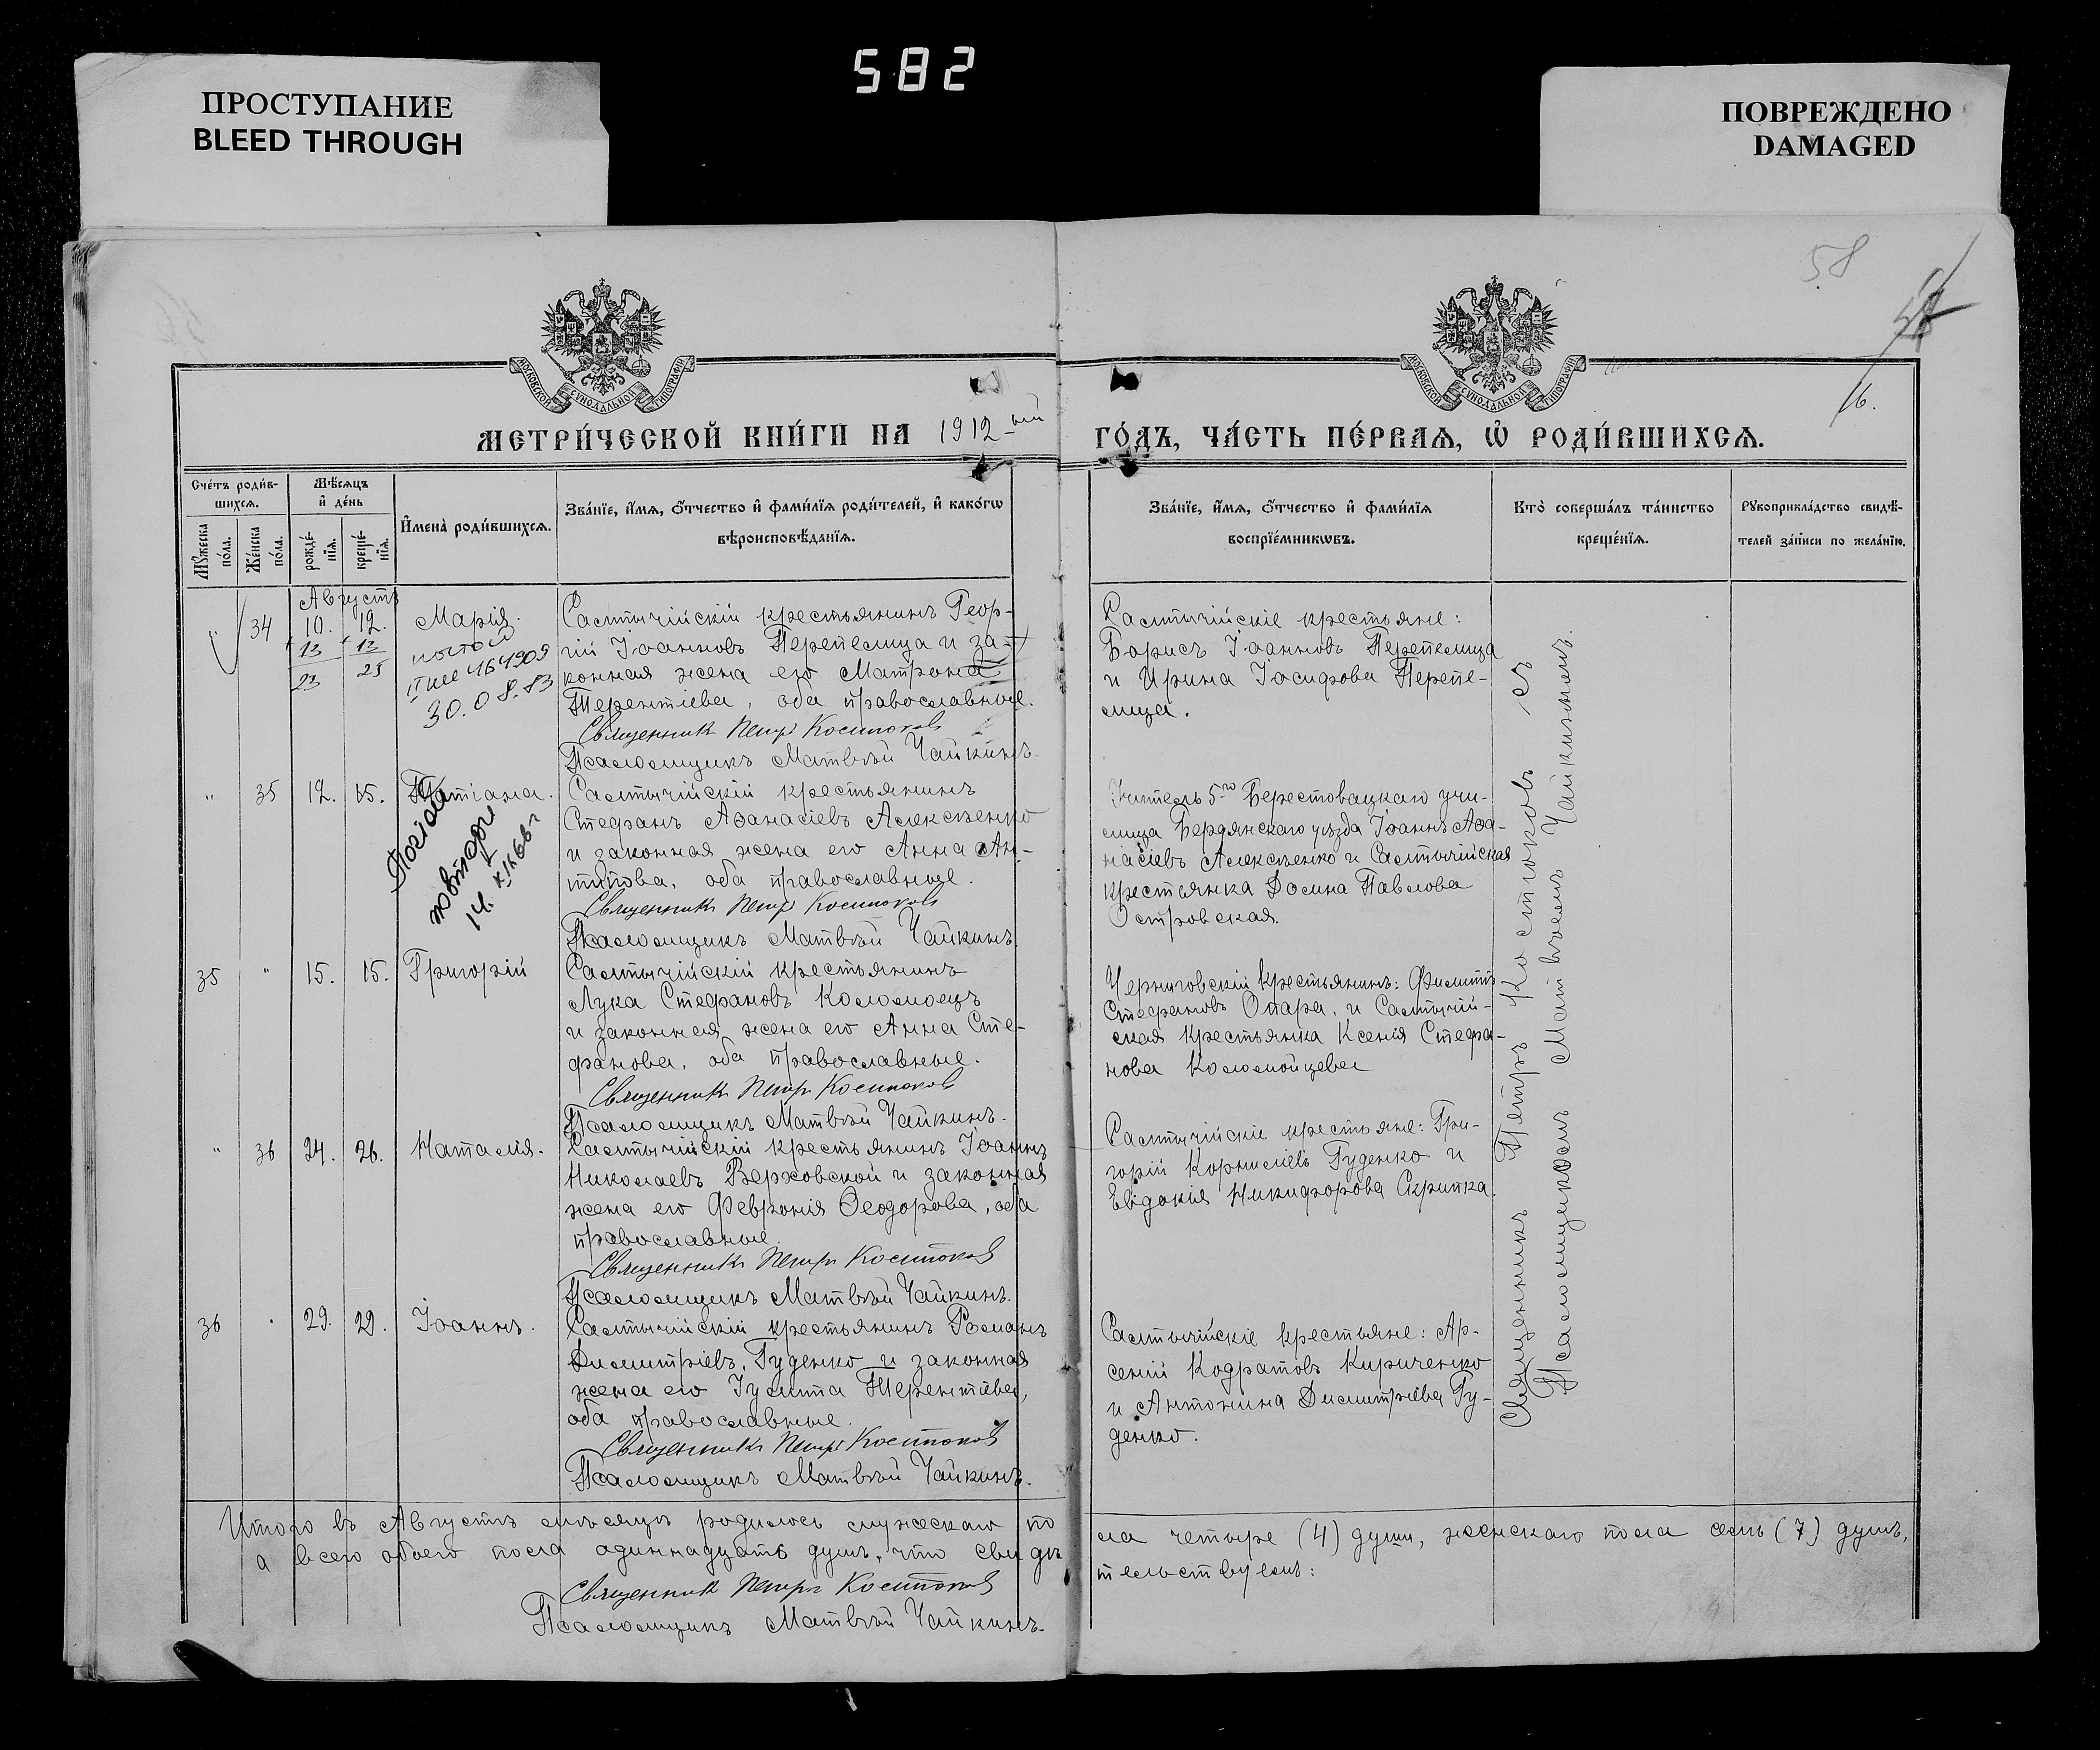 582
ПРОСТУПАНИЕ
BLEED THROUGH
ПОВРЕЖДЕНО
DAMAGED
58
16.
МОСКОВСКОЙ СѴНОДАЛЬНОЙ ТИПОГРАФІИ
МОСКОВСКОЙ СѴНОДАЛЬНОЙ ТИПОГРАФІИ
МЕТРИ́ЧЕСКОЙ КНИ́ГИ НА 1912-ый ГО́ДЪ, ЧА́СТЬ ПЕ́РВАѦ, Ѡ҆ РОДИ́ВШИХСѦ.
Сче́тъ роди́в-
шихсѧ.
Мꙋ́жеска по́ла.
Же́нска по́ла.
Мѣ́сѧцъ
и҆ де́нь
рожде́-
нїѧ.
креще́-
нїѧ.
И҆мена̀ роди́вшихсѧ.
Зва́нїе, и҆́мѧ, ѻ҆́тчество и҆ фами́лїѧ роди́телей, и҆ како́гѡ
вѣроисповѣ́данїѧ.
Зва́нїе, и҆́мѧ, ѻ҆́тчество и҆ фами́лїѧ
воспрїе́мникѡвъ.
Кто̀ соверша́лъ та́инство
креще́нїѧ.
Рꙋкоприкла́дство свидѣ́-
телей за́писи по жела́нїю.
Августъ
" 34 10. 12. Марія.
13 13
23 25
164909
30.08.83
Салтычійскій крестьянинъ Геор-
гій Іоанновъ Перепелица и за-
конная жена его Матрона
Терентіева, оба православные.
Священник Петр Костюков
Псаломщикъ Матвѣй Чайкинъ.
Салтычійскіе крестьяне:
Борисъ Іоанновъ Перепелица
и Ирина Іосифова Перепе-
лица.
" 35 12. 15. Татіана.
повторн
14. X 1966 г
Салтычійскій крестьянинъ
Стефанъ Аѳанасіевъ Алексѣенко
и законная жена его Анна Ан-
типова, оба православные.
Священник Петр Костюков
Псаломщикъ Матвѣй Чайкинъ.
Учитель 5го Берестовацкаго учи-
лища Бердянскаго уѣзда Іоаннъ Аѳа-
насіевъ Алексѣенко и Салтычійская
крестьянка Домна Павлова
Островская.
35 " 15. 15. Григорій
Салтычійскій крестьянинъ
Лука Стефановъ Коломоецъ
и законная жена его Анна Сте-
фанова, оба православные.
Священник Петр Костюков
Псаломщикъ Матвѣй Чайкинъ.
Черниговскій крестьянинъ: Филиппъ
Стефановъ Опара, и Салтычій-
ская крестьянка Ксенія Стефа-
нова Коломойцева
" 36 24. 26. Наталія.
Салтычійскій крестьянинъ Іоаннъ
Николаевъ Верховской и законная
жена его Февронія Ѳеодорова, оба
православные.
Священник Петр Костюков
Псаломщикъ Матвѣй Чайкинъ.
Салтычійскіе крестьяне: Гри-
горій Корниліевъ Гуденко и
Евдокія Никифорова Скрипка.
36 " 29. 29. Іоаннъ.
Салтычійскій крестьянинъ Романъ
Димитріевъ Гуденко и законная
жена его Іулитта Терентіева,
оба православные.
Священник Петр Костюков
Псаломщикъ Матвѣй Чайкинъ.
Салтычійскіе крестьяне: Ар-
сеній Кодратовъ Кириченко
и Антонина Димитріева Гу-
денко.
Священникъ Петръ Костюковъ съ
Псаломщикомъ Матвѣемъ Чайкинымъ.
Итого въ Августѣ мѣсяцѣ родилось мужескаго по ла четыре (4) души, женскаго пола семь (7) душъ,
а всего обоего пола одиннадцать душъ, что свидѣ тельствуемъ:
Священник Петр Костюков
Псаломщикъ Матвѣй Чайкинъ.